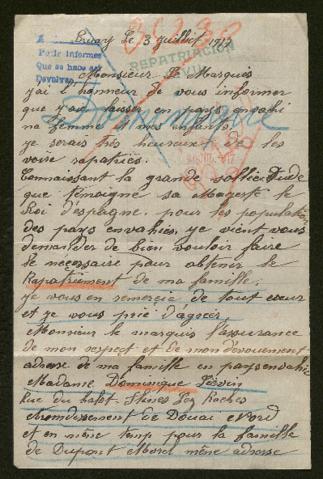 Bruay le 3 juillet 1917
A
Pedir informes
Que se hace así
Devolver
REPATRIACION
Monsieur Le Marquis
j'ai l'honneur de vous informer
que j'ai laisser en pays envahi
ma femme et mes enfants.
je serais très heureux de les
voire rapatriés.
Dominique
Connaissant la grande sollicitude
que témoigne sa Majesté le
Roi d'espagne. pour les population
des pays envahies, je vient vous
demander de bien vouloir faire
le nécessaire pour obtenir le
Rapatriement de ma famille.
je vous en remercie de tout cœur
et je vous prie d'agréer,
Monsieur le marquis l'assurance
de mon respect et de mon dévouement
adresse de ma famille en pays envahie
Madame Dominique
Rue du Flines Lez Raches
Arrondissement de Douai Nord
et en même temp pour la famille
de Dupont même adresse